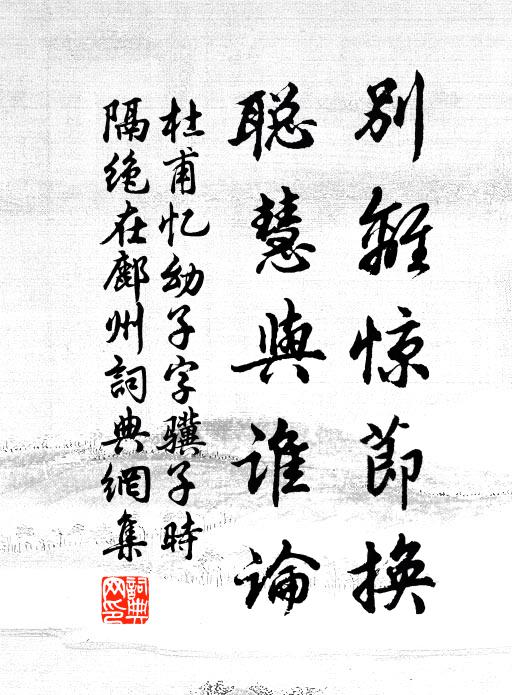 别離惊節換
聪慧與誰論
杜甫忆幼子字骥子時
隔绝在鄜州詞典網集
詞典网印